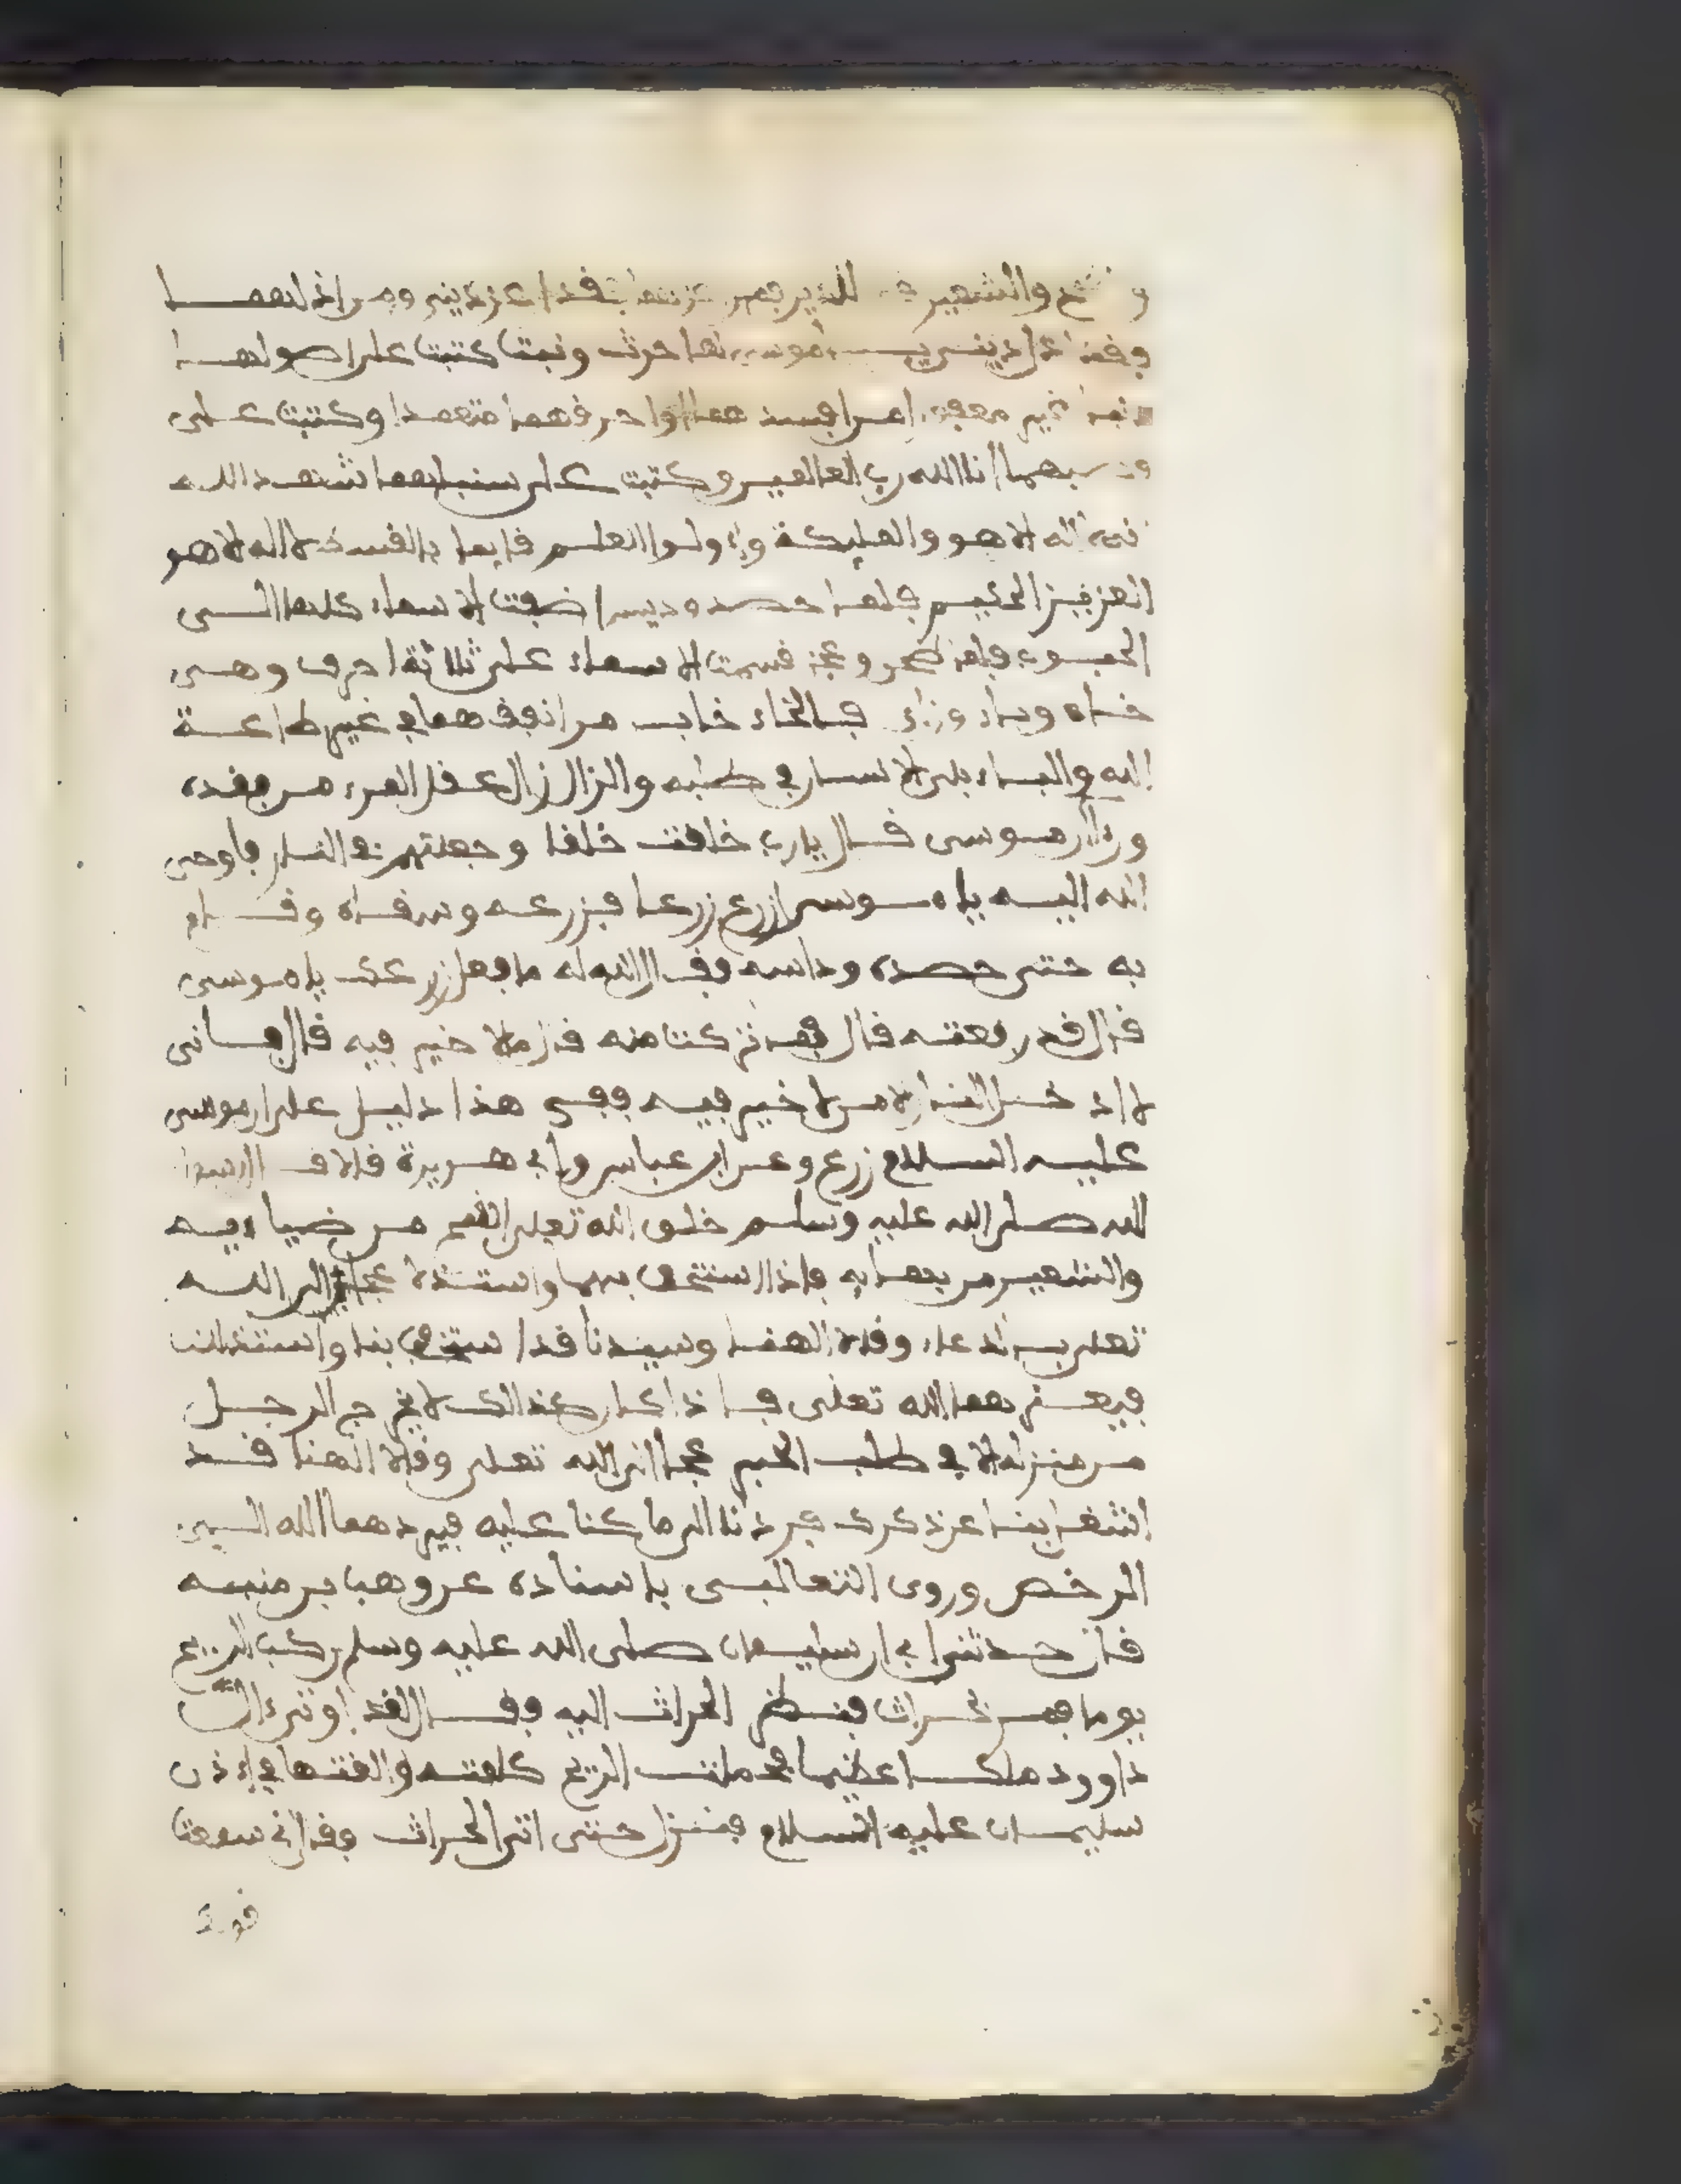 والشعير فمن فقد اعز ديني ومن اذلهما
فقد اذل ديني يا موسى لها حرث ونبت كتبت على اصولهما
غير متعمدا وكتبت على
انا الله رب العالمين وكتبت على سنبلهما شهد الله
انه لا اله الا هو والمليكة واولوا العلم قايما بالقسط لا اله الا هو
العزيز الحكيم فلما حصد وديس اضفت الاسماء كلها الى
الحبوب فلما طحن وعجن قسمت الاسماء على ثلاثة احرف وهي
خاء وباء وزاي فبالخاء خاب من انفقهما في غير طاعة
الله والباء بلي الانسان في طلبه والزاي زال عقل المرء من فقده
وان موسى قال يا رب خلقت خلقا وجعلتهم في النار فاوحى
الله اليه يا موسى ازرع زرعا فزرعه وسقاه وقام
به حتى حصده وداسه فقال الله له ما فعل زرعك يا موسى
قال قد رفعته قال فما تركت منه قال ما لا خير فيه قال فاني
لا ادخل النار الا من لا خير فيه ففي هذا دليل على ان موسى
عليه السلام زرع وعن ابن عباس وابي هريرة قالا قال رسول
الله صلى الله عليه وسلم خلق الله تعلى القمح من ضيايه
والشعير من بهايه فاذا استخف بهما واستذلا عجا الى الله
تعلى بالدعاء وقالا الهنا وسيدنا قد استخف بنا واستذللنا
فيعزهما الله تعلى فاذا كان كذالك لا يخرج الرجل
من منزله الا في طلب الخبز عجا الى الله تعلى وقالا الهنا قد
اشتغل بنا عن ذكرك فردنا الى ما كنا عليه فيردهما الله الى
الرخص وروى الثعالبي باسناده عن وهب بن منبه
قال حدثني ابي ان سليمان صلى الله عليه وسلم ركب الريح
يوما فمر بحراث فنظر الحراث اليه وقال لقد اوتي ءال
داوود ملكا عظيما فحملت الريح كلمته والقتها في اذن
سليمان عليه السلام فنزل حتى اتى الحراث وقال اني سمعت
قولك